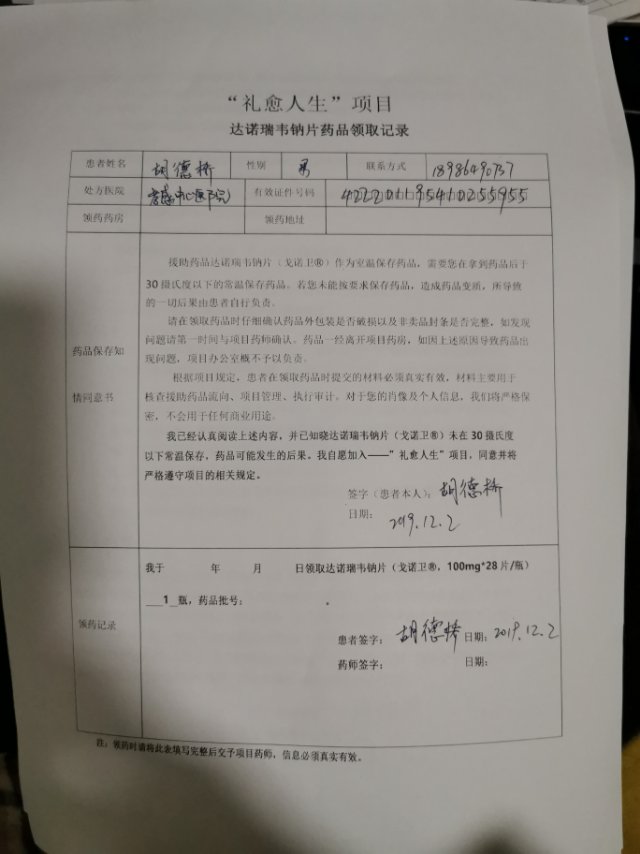 “礼愈人生”项目
达诺瑞韦钠片药品领取记录
患者姓名 胡德桥 性别 男 联系方式 18986490737
处方医院 孝感中心医院 有效证件号码 422201195410255955
领药药房 领药地址
药品保存知
情同意书
援助药品达诺瑞韦钠片（戈诺卫®）作为室温保存药品，需要您在拿到药品后于
30摄氏度以下的常温保存药品。若您未能按要求保存药品，造成药品变质，所导致
的一切后果由患者自行负责。
请在领取药品时仔细确认药品外包装是否破损以及非卖品封条是否完整，如发现
问题请第一时间与项目药师确认。药品一经离开项目药房，如因上述原因导致药品出
现问题，项目办公室概不予以负责。
根据项目规定，患者在领取药品时提交的材料必须真实有效，材料主要用于
核查援助药品流向、项目管理、执行审计。对于您的肖像及个人信息，我们将严格保
密，不会用于任何商业用途。
我已经认真阅读上述内容，并已知晓达诺瑞韦钠片（戈诺卫®）未在30摄氏度
以下常温保存，药品可能发生的后果。我自愿加入——”礼愈人生”项目，同意并将
严格遵守项目的相关规定。
签字（患者本人）：胡德桥
日期： 2019.12.2
领药记录
我于 年 月 日领取达诺瑞韦钠片（戈诺卫®，100mg*28片/瓶）
___1__瓶，药品批号： 。
患者签字： 胡德桥 日期：2019.12.2
药师签字： 日期：
注：领药时请将此表填写完整后交予项目药师，信息必须真实有效。